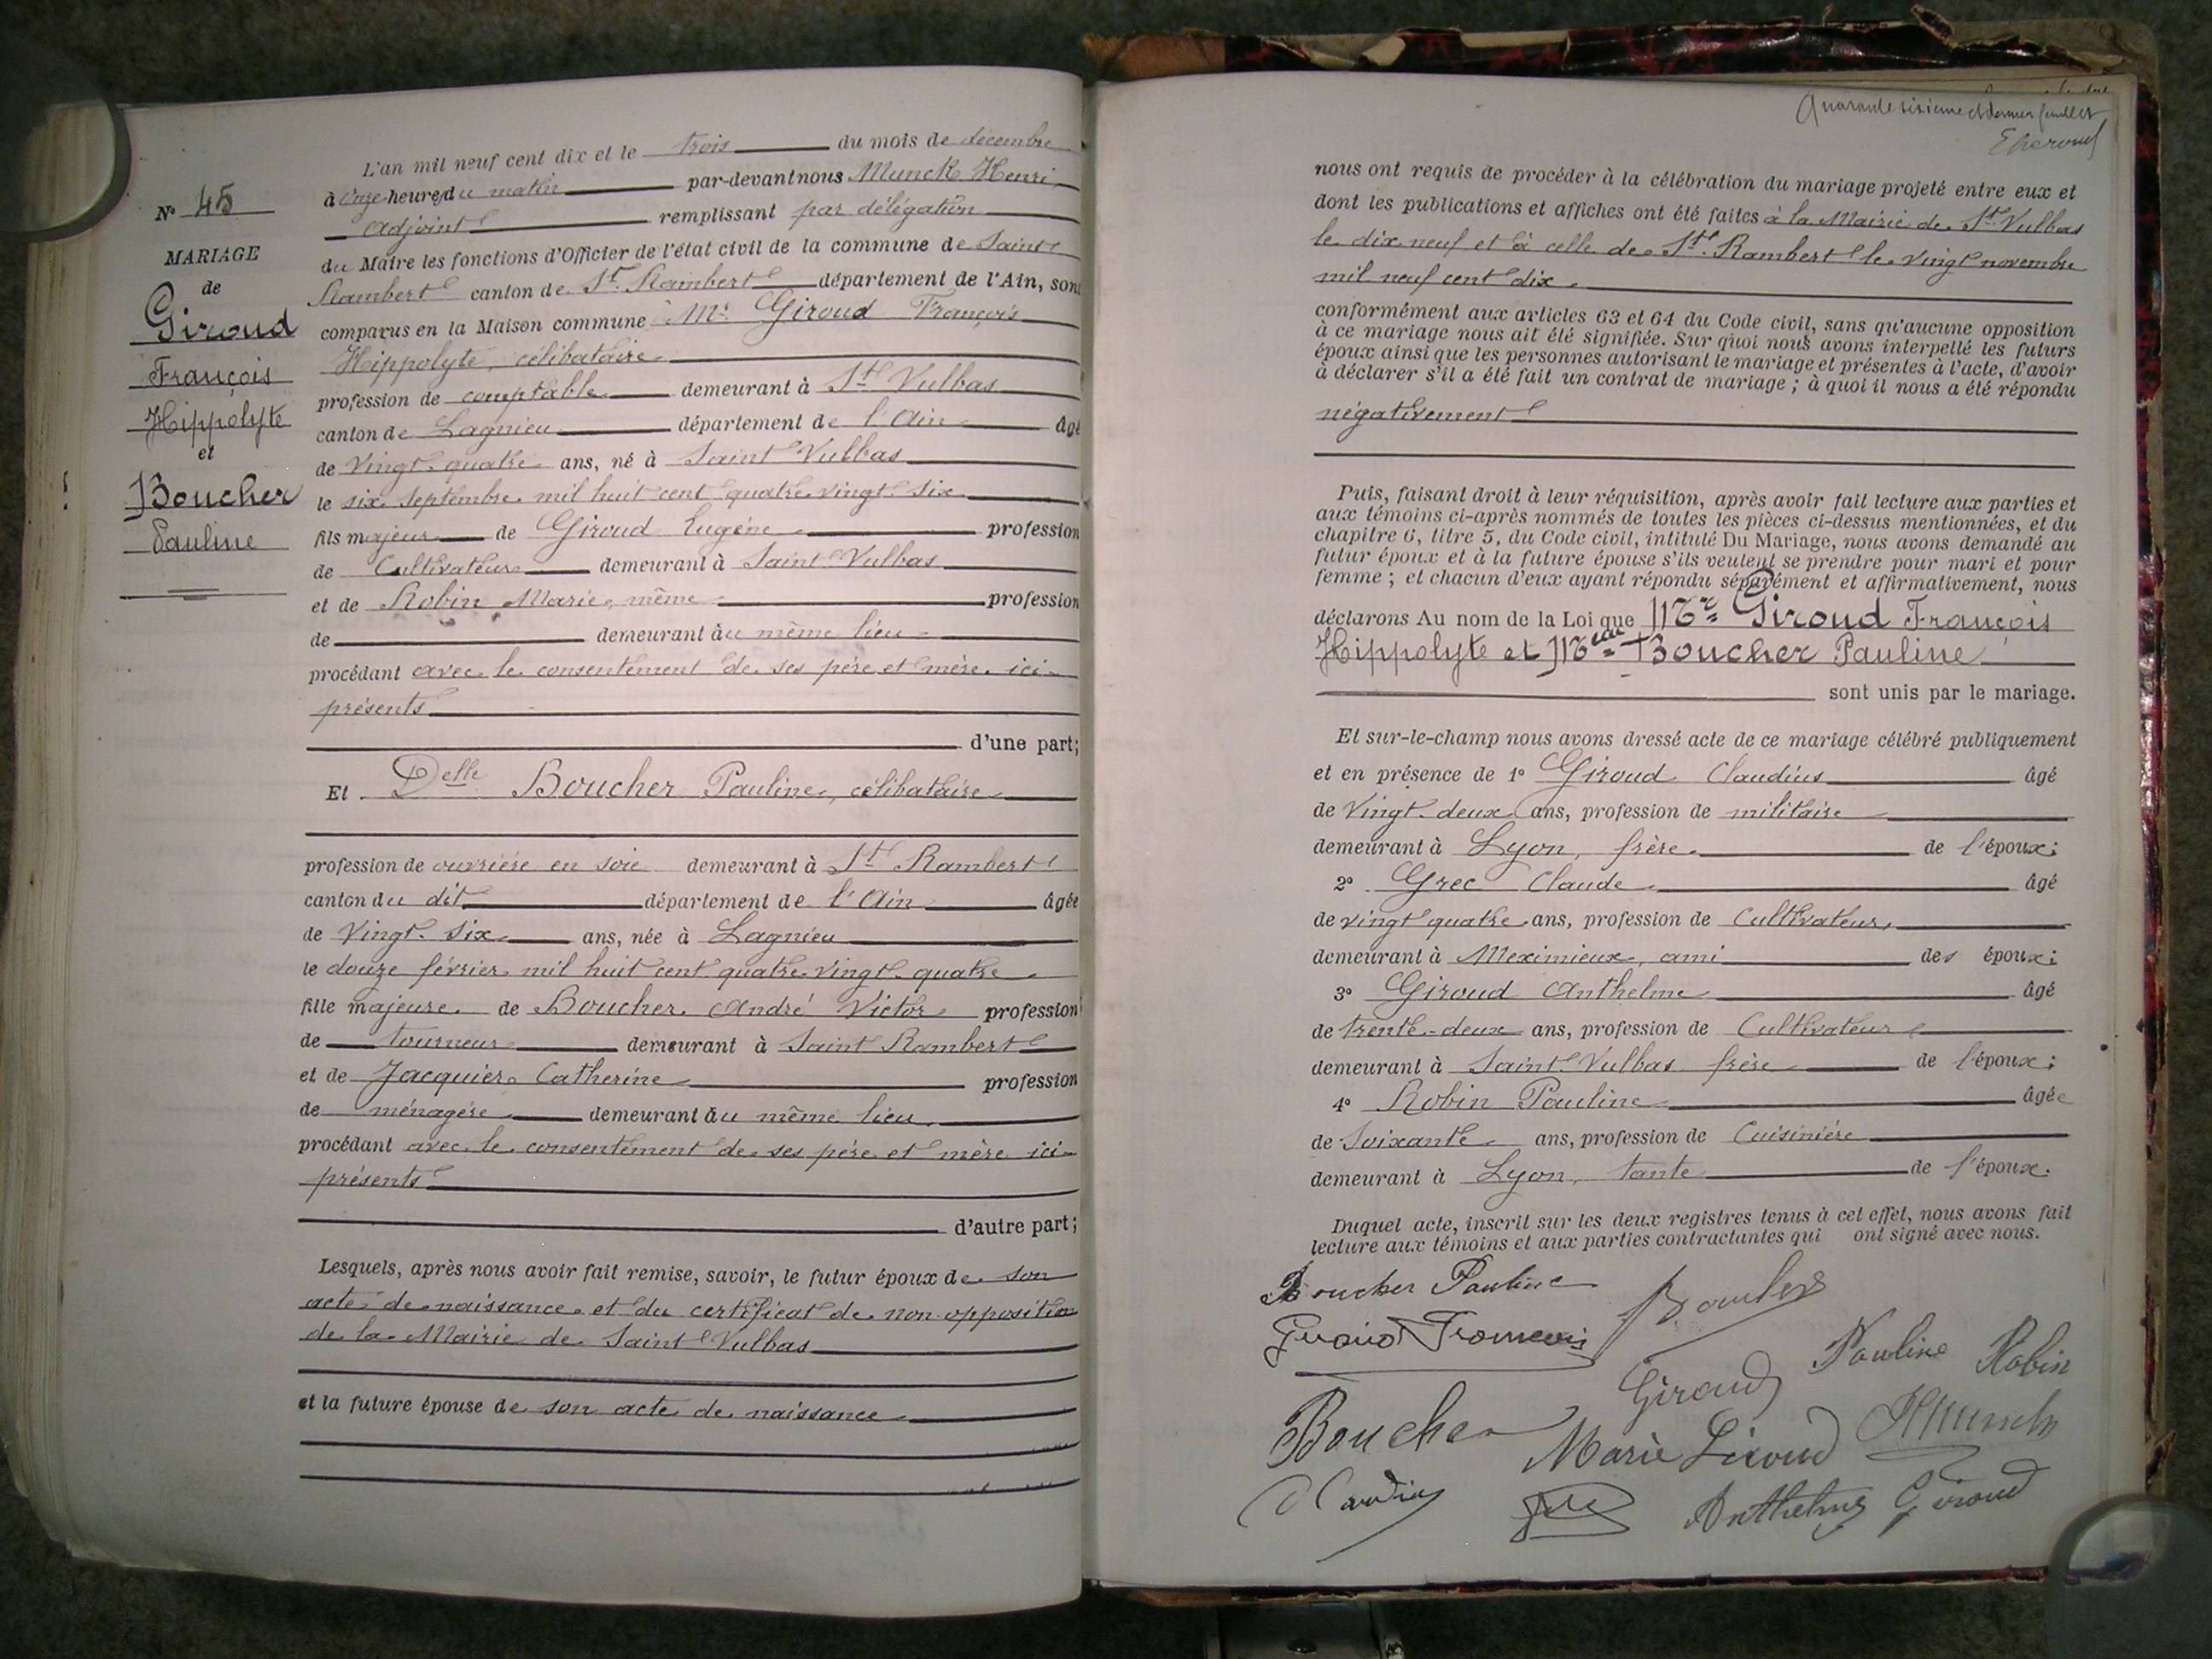 N° 45
MARIAGE
de
Giroud
François
Hippolyte
et
Boucher
Pauline
L'an mil neuf cent dix et le trois du mois de décembre
à onze heures du matin par-devant nous Munck Henri
adjoint remplissant par délégation
du Maire les fonctions d'Officier de l'état civil de la commune de Saint
Rambert canton de St Rambert département de l'Ain, sont
comparus en la Maison commune Mr Giroud François
Hippolyte, célibataire
profession de comptable demeurant à St Vulbas
canton de Lagnieu département de l'Ain âgé
de vingt-quatre ans, né à Saint Vulbas
le six septembre mil huit cent quatre vingt six
fils majeur de Giroud Eugène profession
de Cultivateur demeurant à Saint Vulbas
et de Robin Marie, même profession
de demeurant au même lieu
procédant avec le consentement de ses père et mère ici
présents
d'une part;
Et Delle Boucher Pauline, célibataire
profession de ouvrière en soie demeurant à St Rambert
canton du dit département de l'Ain âgée
de vingt-six ans, née à Lagnieu
le douze février mil huit cent quatre vingt-quatre
fille majeure de Boucher André Victor profession
de tourneur demeurant à Saint Rambert
et de Jacquier Catherine profession
de ménagère demeurant au même lieu
procédant avec le consentement de ses père et mère ici
présents
d'autre part;
Lesquels, après nous avoir fait remise, savoir, le futur époux de son
acte de naissance et du certificat de non-opposition
de la Mairie de Saint Vulbas
et la future épouse de son acte de naissance
Quarante sixième et dernier feuillet
nous ont requis de procéder à la célébration du mariage projeté entre eux et
dont les publications et affiches ont été faites à la Mairie de St Vulbas
le dix neuf et à celle de St Rambert le vingt novembre
mil neuf cent dix
conformément aux articles 63 et 64 du Code civil, sans qu'aucune opposition
à ce mariage nous ait été signifiée. Sur quoi nous avons interpellé les futurs
époux ainsi que les personnes autorisant le mariage et présentes à l'acte, d'avoir
à déclarer s'il a été fait un contrat de mariage ; à quoi il nous a été répondu
négativement
Puis, faisant droit à leur réquisition, après avoir fait lecture aux parties et
aux témoins ci-après nommés de toutes les pièces ci-dessus mentionnées, et du
chapitre 6, titre 5, du Code civil, intitulé Du Mariage, nous avons demandé au
futur époux et à la future épouse s'ils veulent se prendre pour mari et pour
femme ; et chacun d'eux ayant répondu séparément et affirmativement, nous
déclarons Au nom de la Loi que Mr Giroud François
Hippolyte et Melle Boucher Pauline
sont unis par le mariage.
Et sur-le-champ nous avons dressé acte de ce mariage célébré publiquement
et en présence de 1° Giroud Claudius âgé
de vingt-deux ans, profession de militaire
demeurant à Lyon, frère de l'époux;
2° Grec Claude âgé
de vingt quatre ans, profession de Cultivateur,
demeurant à Meximieux, ami des époux;
3° Giroud Anthelme âgé
de trente-deux ans, profession de Cultivateur
demeurant à Saint-Vulbas frère de l'époux;
4° Robin Pauline âgée
de soixante ans, profession de Cuisinière
demeurant à Lyon, tante de l'époux.
Duquel acte, inscrit sur les deux registres tenus à cet effet, nous avons fait
lecture aux témoins et aux parties contractantes qui ont signé avec nous.
Boucher Pauline
Giroud François
Pauline Robin
Giroud
Boucher
Marie Giroud
HMunck
Claudius
Anthelme Giroud